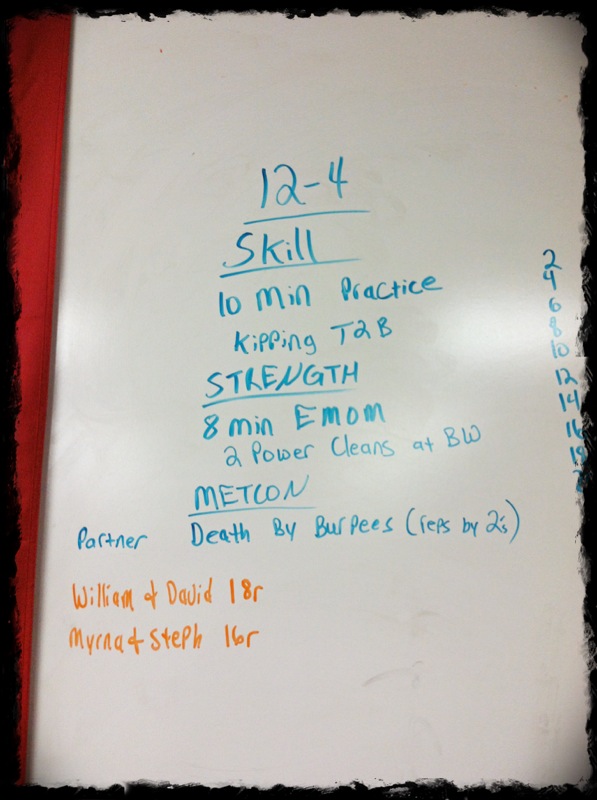 12-4
Skill
10 Min Practice
Kipping T2B
STRENGTH
8 min EMOM
2 Power Cleans at BW
METCON
Partner Death By Burpees (reps by 2's)
William & David 18r
Myrna & Steph 16r
2
4
6
8
10
12
14
16
18